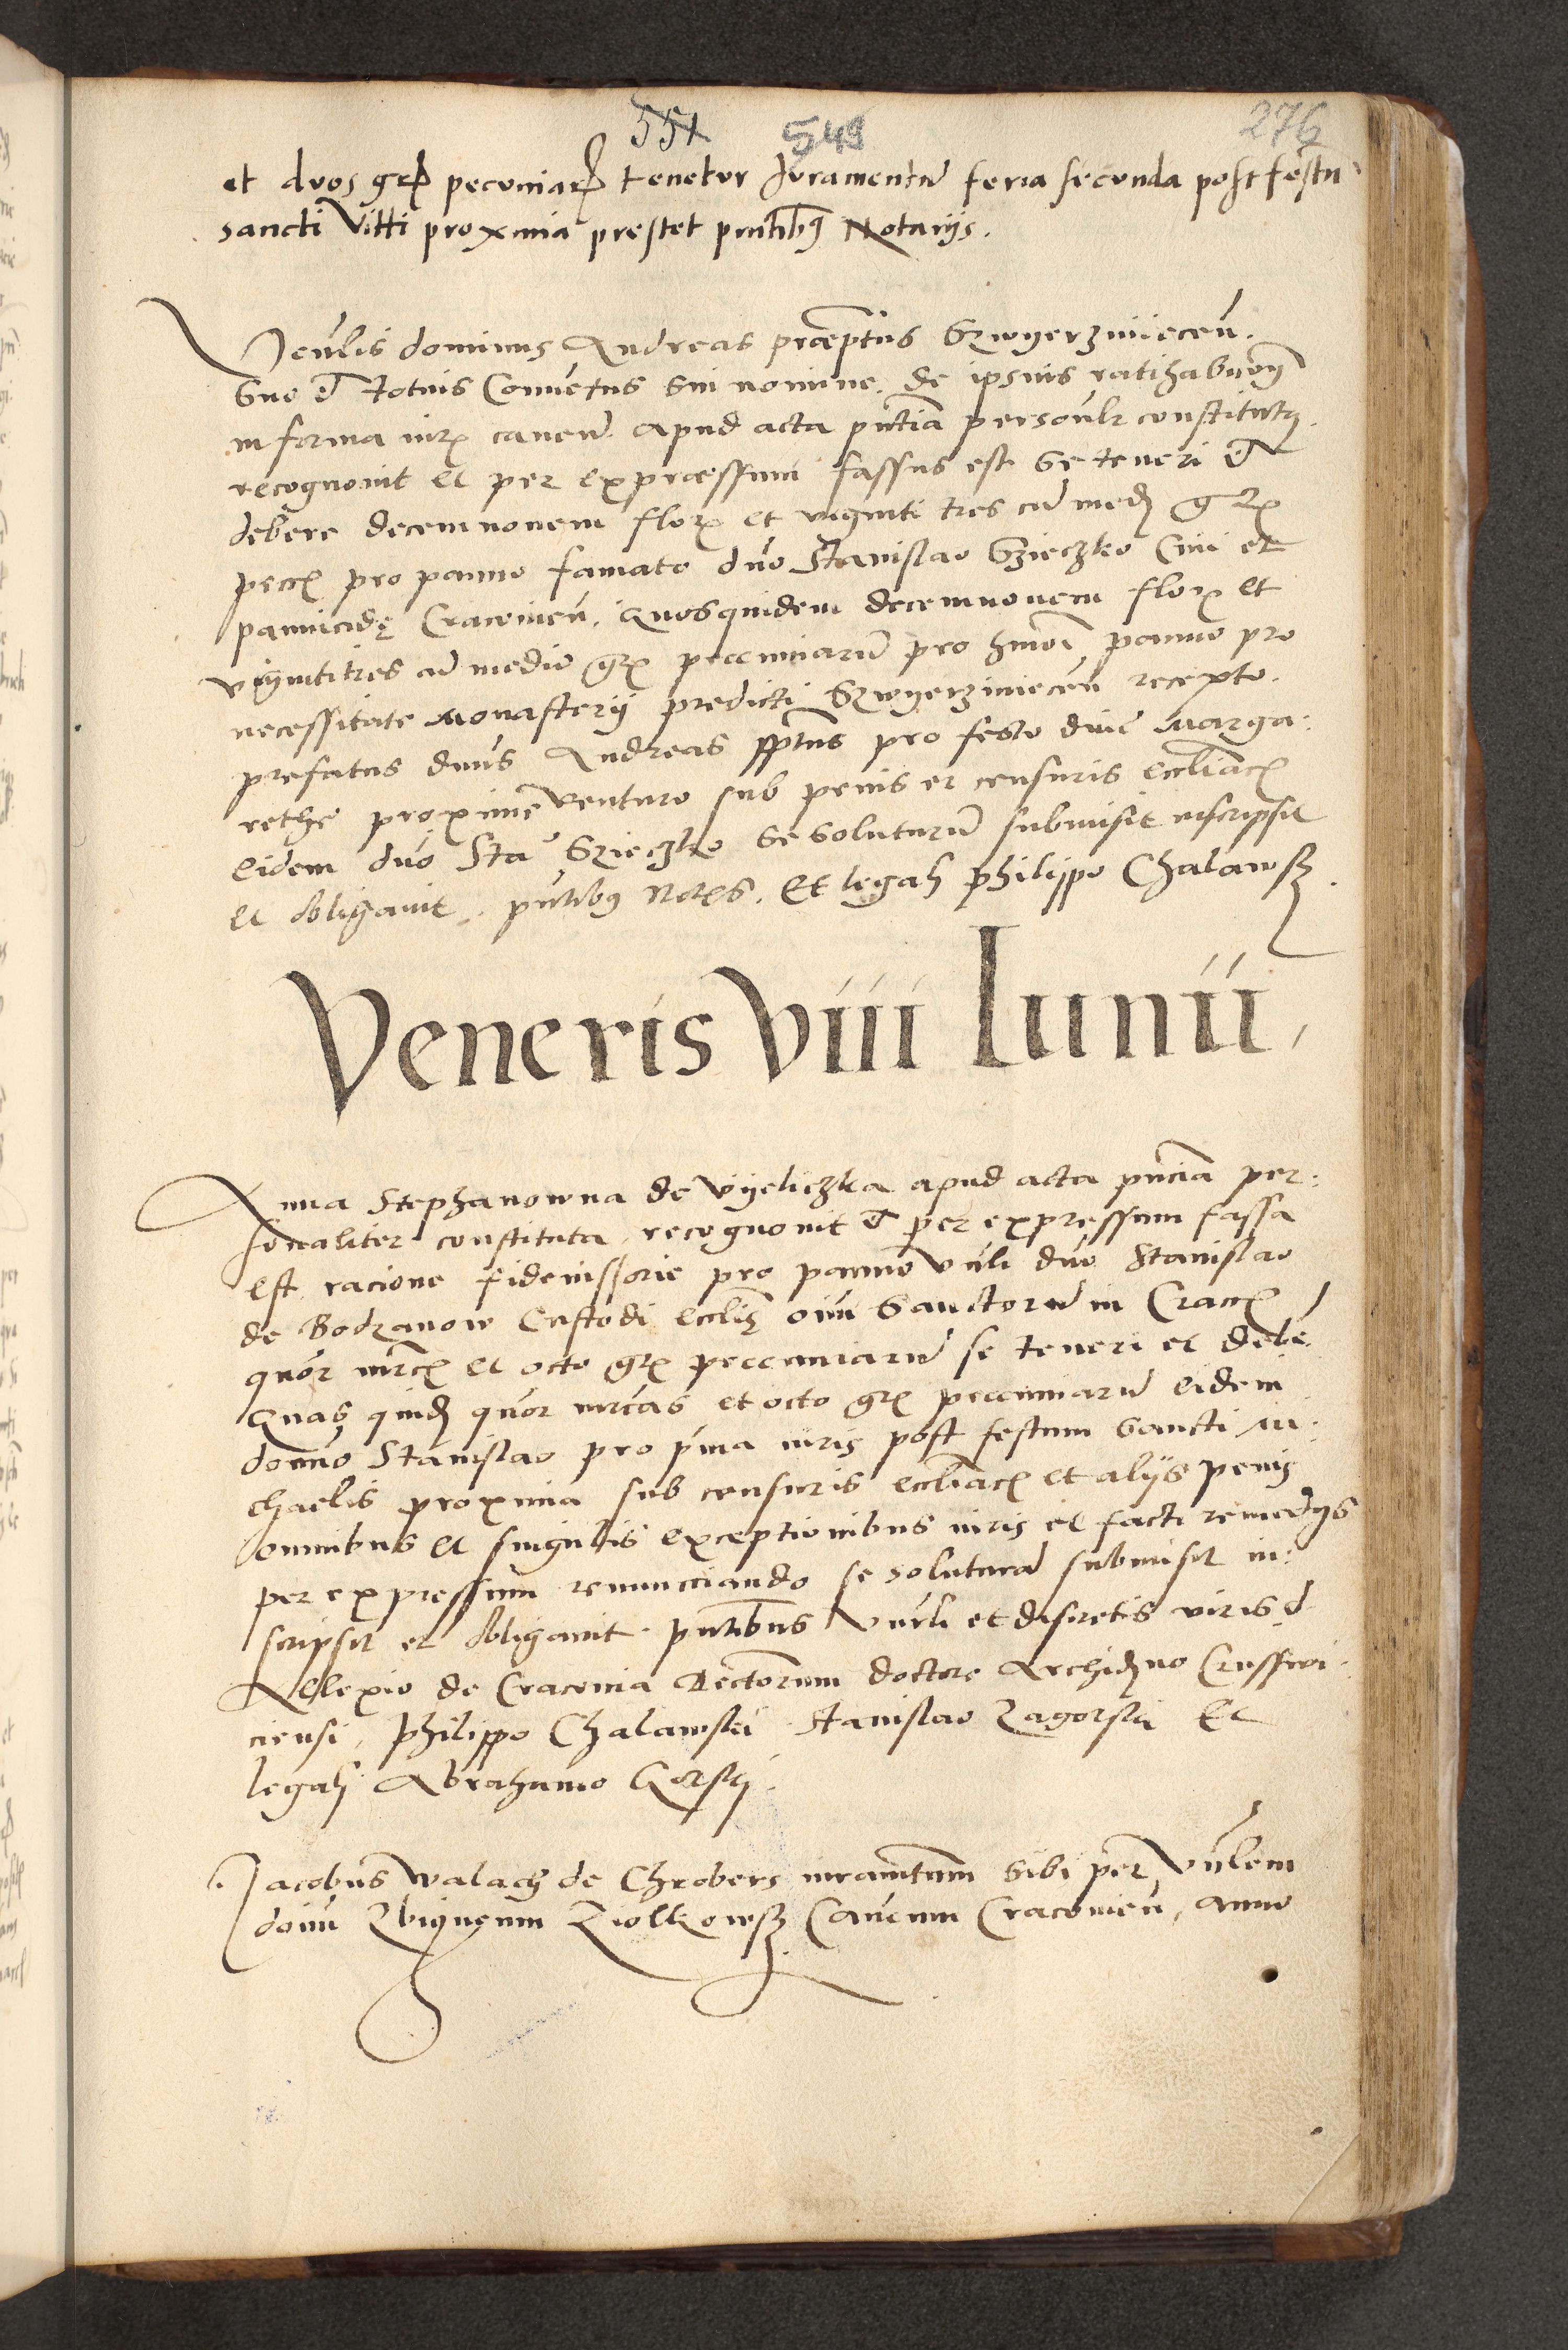 551 549 276
et duos gr peccuniar tenetur Juramentu feria secunda post festu
sancti Vitti proxima prestet pntibq Notarijs.
Venlis dominus Andreas præptus Szwyerzinijecen.
suo et totius Conuetus sui nomine. de ipsius ratihabitioe
in forma iur cauen. apud acta pntia personlr constitutq
recognouit et per expræssum fassus est se teneri et
debere decemnouem flor et viginti tres cu med gr
pecc pro panno famato dno Stanislao Szieczko Ciui et
pannicidę Cracouien. Quosquidem decemnouem flor et
vigintitres cu medio gr peccuniaru pro hmoi panno pro
necessitate Monasterij predicti Szwyerziniecen recepto.
prefatus dnus Andreas pptus pro festo diue Marga:
rethe proxime venturo sub penis et censuris eccliac
eidem dno Sta Szieczko se soluturu submisit inscripsit
et obligauit. pntibq Notrs. Et legali philippo Chalawsk.
Veneris Viii Iunii,
Anna Stephanowna de Vyeliczka apud acta pncia per:
sonaliter constituta recognouit et per expressum fassa
est racione fideiussorie pro panno vnli dno Stanislao
de Bodzanow Custodi ecclię oim Sanctoru in Cracc
quor mrc et octo gr peccuniaru se teneri et debe.
Quas quid quor mrcas et octo gr peccuniaru eidem
domno Stanislao pro pma iuris post festum Sancti Mi:
chaelis proxima sub censuris eccliac et alijs penis
omnibus et singulis exceptionibus iuris et facti remedijs
per expressum renunciando se soluturu submisit in:
scripsit et obligauit. pntibus Vnrli et discretis viris d
Allexio de Cracouia Decretorum doctore Archidno Crusswi:
ciensi, philippo Chalawski Stanislao Zagorski Et
legali Abrahamo Gorskj.
Jacobus Walach de Chrobers iuramtum sibi per Vnlem
dom Zbigneum Ziolkowsk Cancum Cracouien, anno